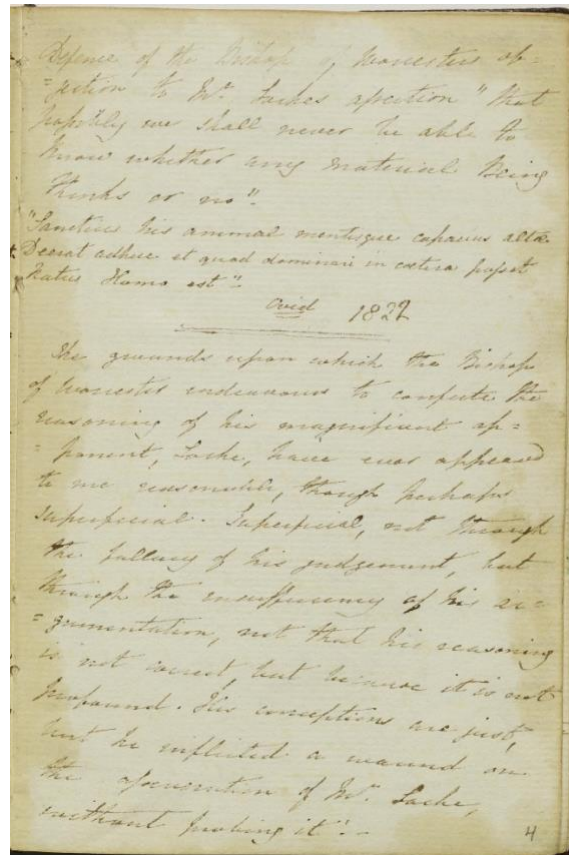 Defence of the Bishop of Worcesters ob=
=jection to Mr. Lockes assertion "that
possibly we shall never be able to
know whether any material Being
thinks or no".
"Sanctius his animal mentisque capacius altæ
Deerat adhuc et quod dominari in cætera posset
Natus Homo est".
Ovid 1822
The grounds upon which the Bishop
of Worcester endeavours to confute the
reasoning of his magnificent op=
=ponent, Locke, have ever appeared
to me reasonable, though perhaps
superficial. Superficial, not through
the fallacy of his judgement, but
through the insufficiency of his ar=
=gumentation, not that his reasoning
is not correct, but because it is not
profound. His conceptions are just,
but he inflicted a wound on
the asseveration of Mr. Locke,
without probing it".
4